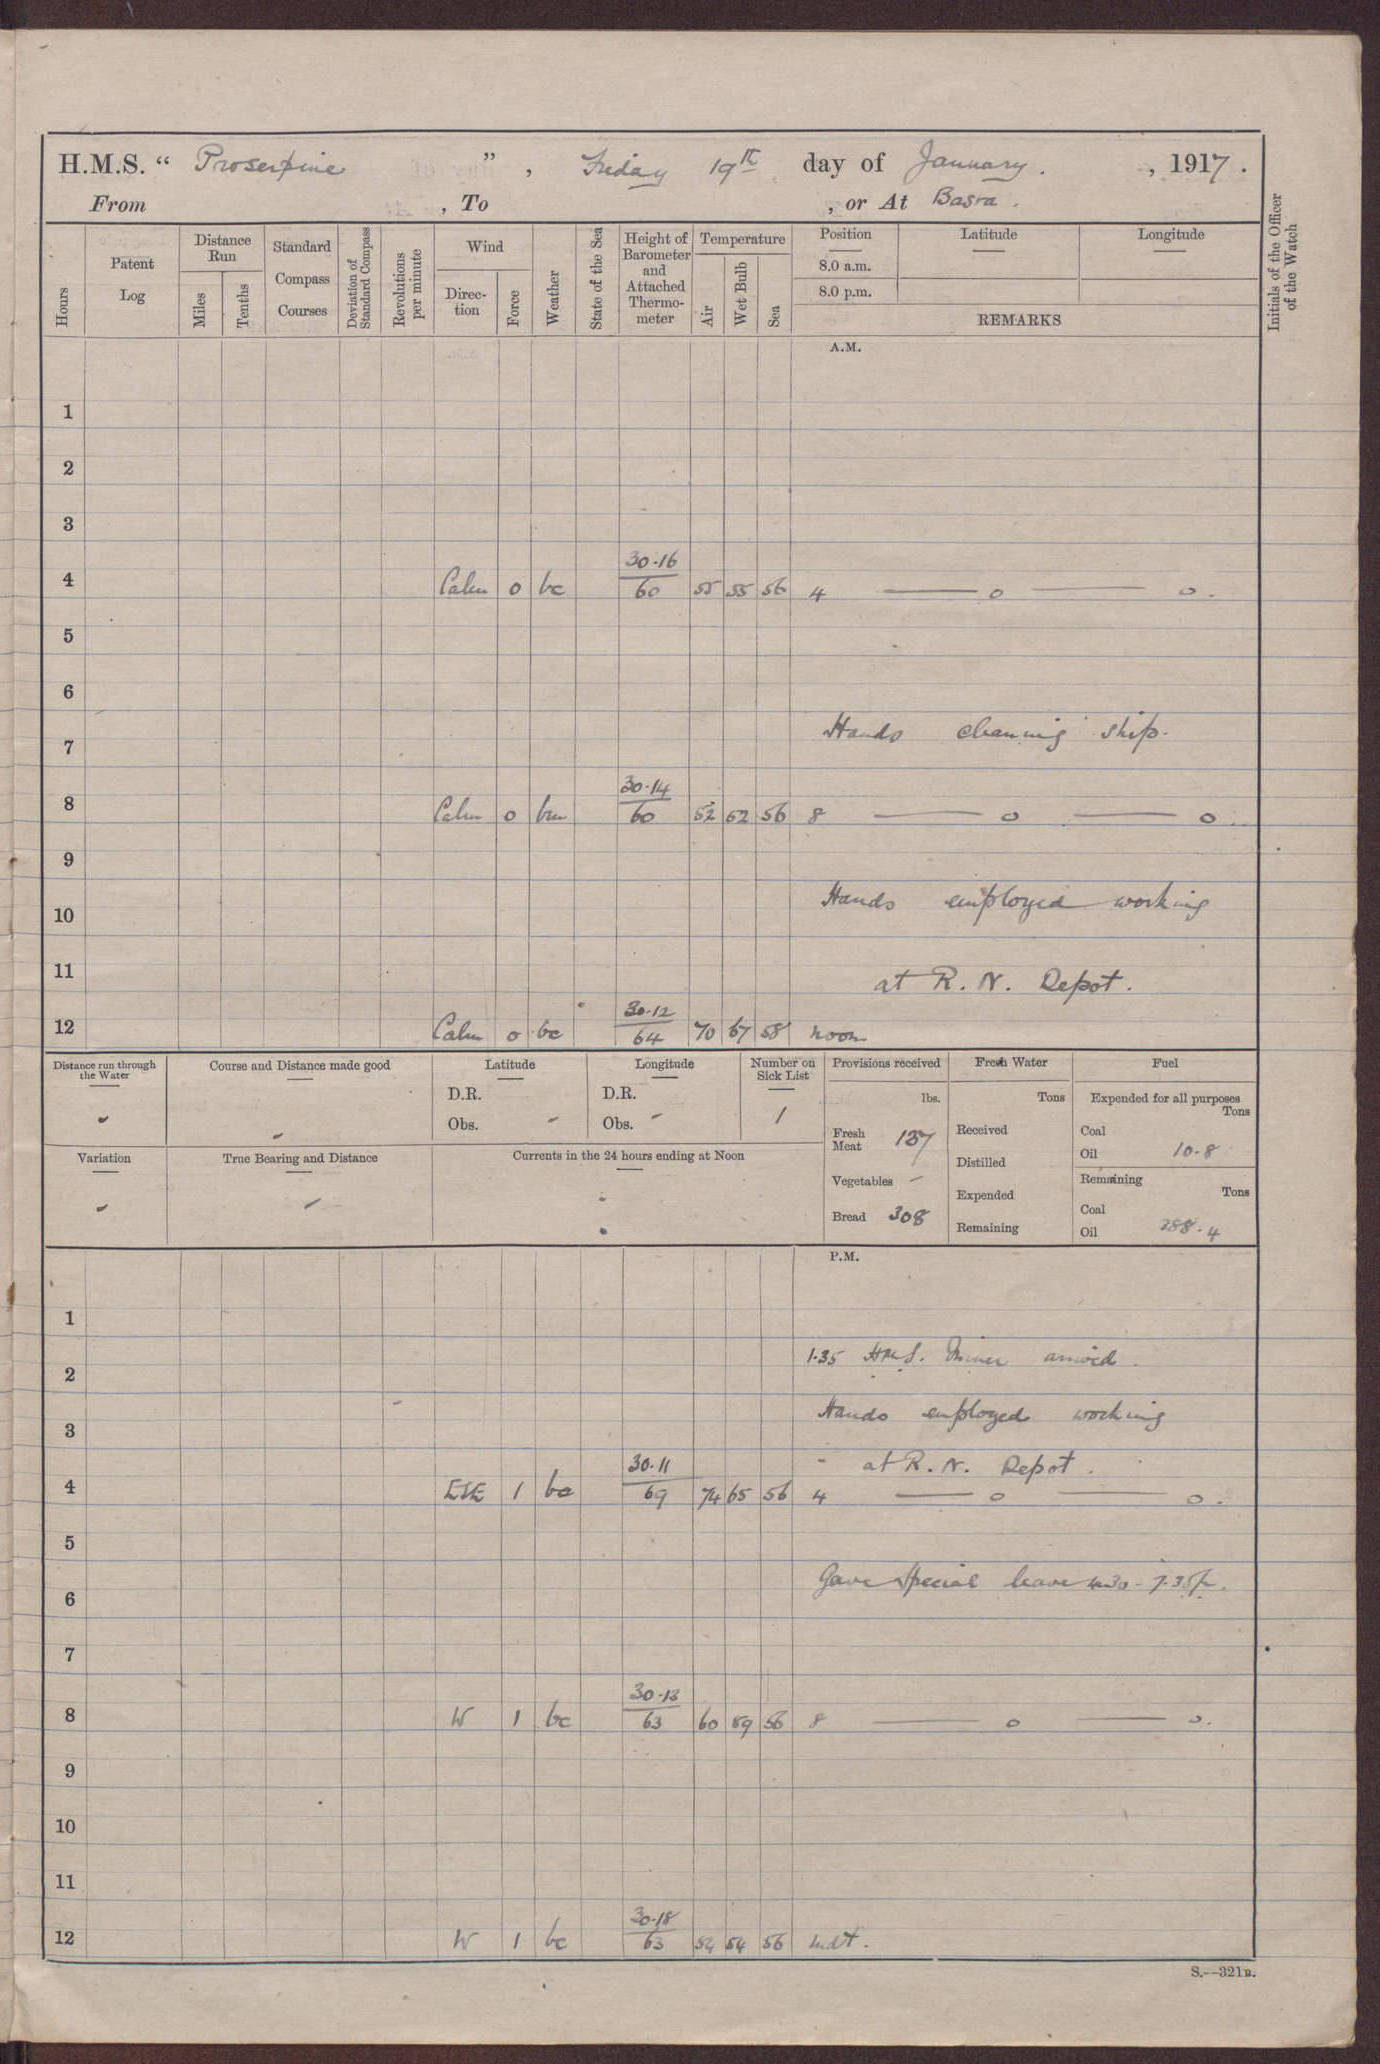 H.M.S. " Proserpine ", Friday 19th day of January, 1917.
From , To , or At Basra.
Hours
Patent Log
Distance Run
Miles
Tenths
Standard Compass Courses
Deviation of Standard Compass
Revolutions per minute
Wind
Direc-tion
Force
Weather
State of the Sea
Height of Barometer and Attached Thermo-meter
Temperature
Air
Wet Bulb
Sea
Position Latitude Longitude
8.0 a.m.
8.0 p.m.
REMARKS
Initials of the Officer of the Watch
A.M.
1
2
3
30.16
4 Calm 0 bc 60 55 55 56 4 — o — o.
5
6
7 Hands cleaning ship.
30.14
8 Calm 0 bm 60 52 52 56 8 — o — o
9
10 Hands employed working
11 at R.N. Depot.
30.12
12 Calm 0 bc 64 70 67 58 noon
Distance run through the Water
Course and Distance made good
Latitude
D.R.
Obs. -
Longitude
D.R.
Obs. -
Number on Sick List
1
Variation
True Bearing and Distance
Currents in the 24 hours ending at Noon
Provisions received
lbs.
Fresh Meat 137
Vegetables -
Bread 308
Fresh Water
Tons
Received
Distilled
Expended
Remaining
Fuel
Expended for all purposes
Tons
Coal
Oil 10.8
Remaining
Tons
Coal
Oil 388.4
P.M.
1
2 1.35 H.M.S. Miner arrived.
3 Hands employed working
at R.N. Depot.
30.11
4 ESE 1 bc 69 74 65 56 4 — o — o.
5
6 Gave special leave 4.30 - 7.35p.
7
30.13
8 W 1 bc 63 60 59 56 8 — o — o.
9
10
11
30.18
12 W 1 bc 63 54 54 56 Mdt.
S.—321B.